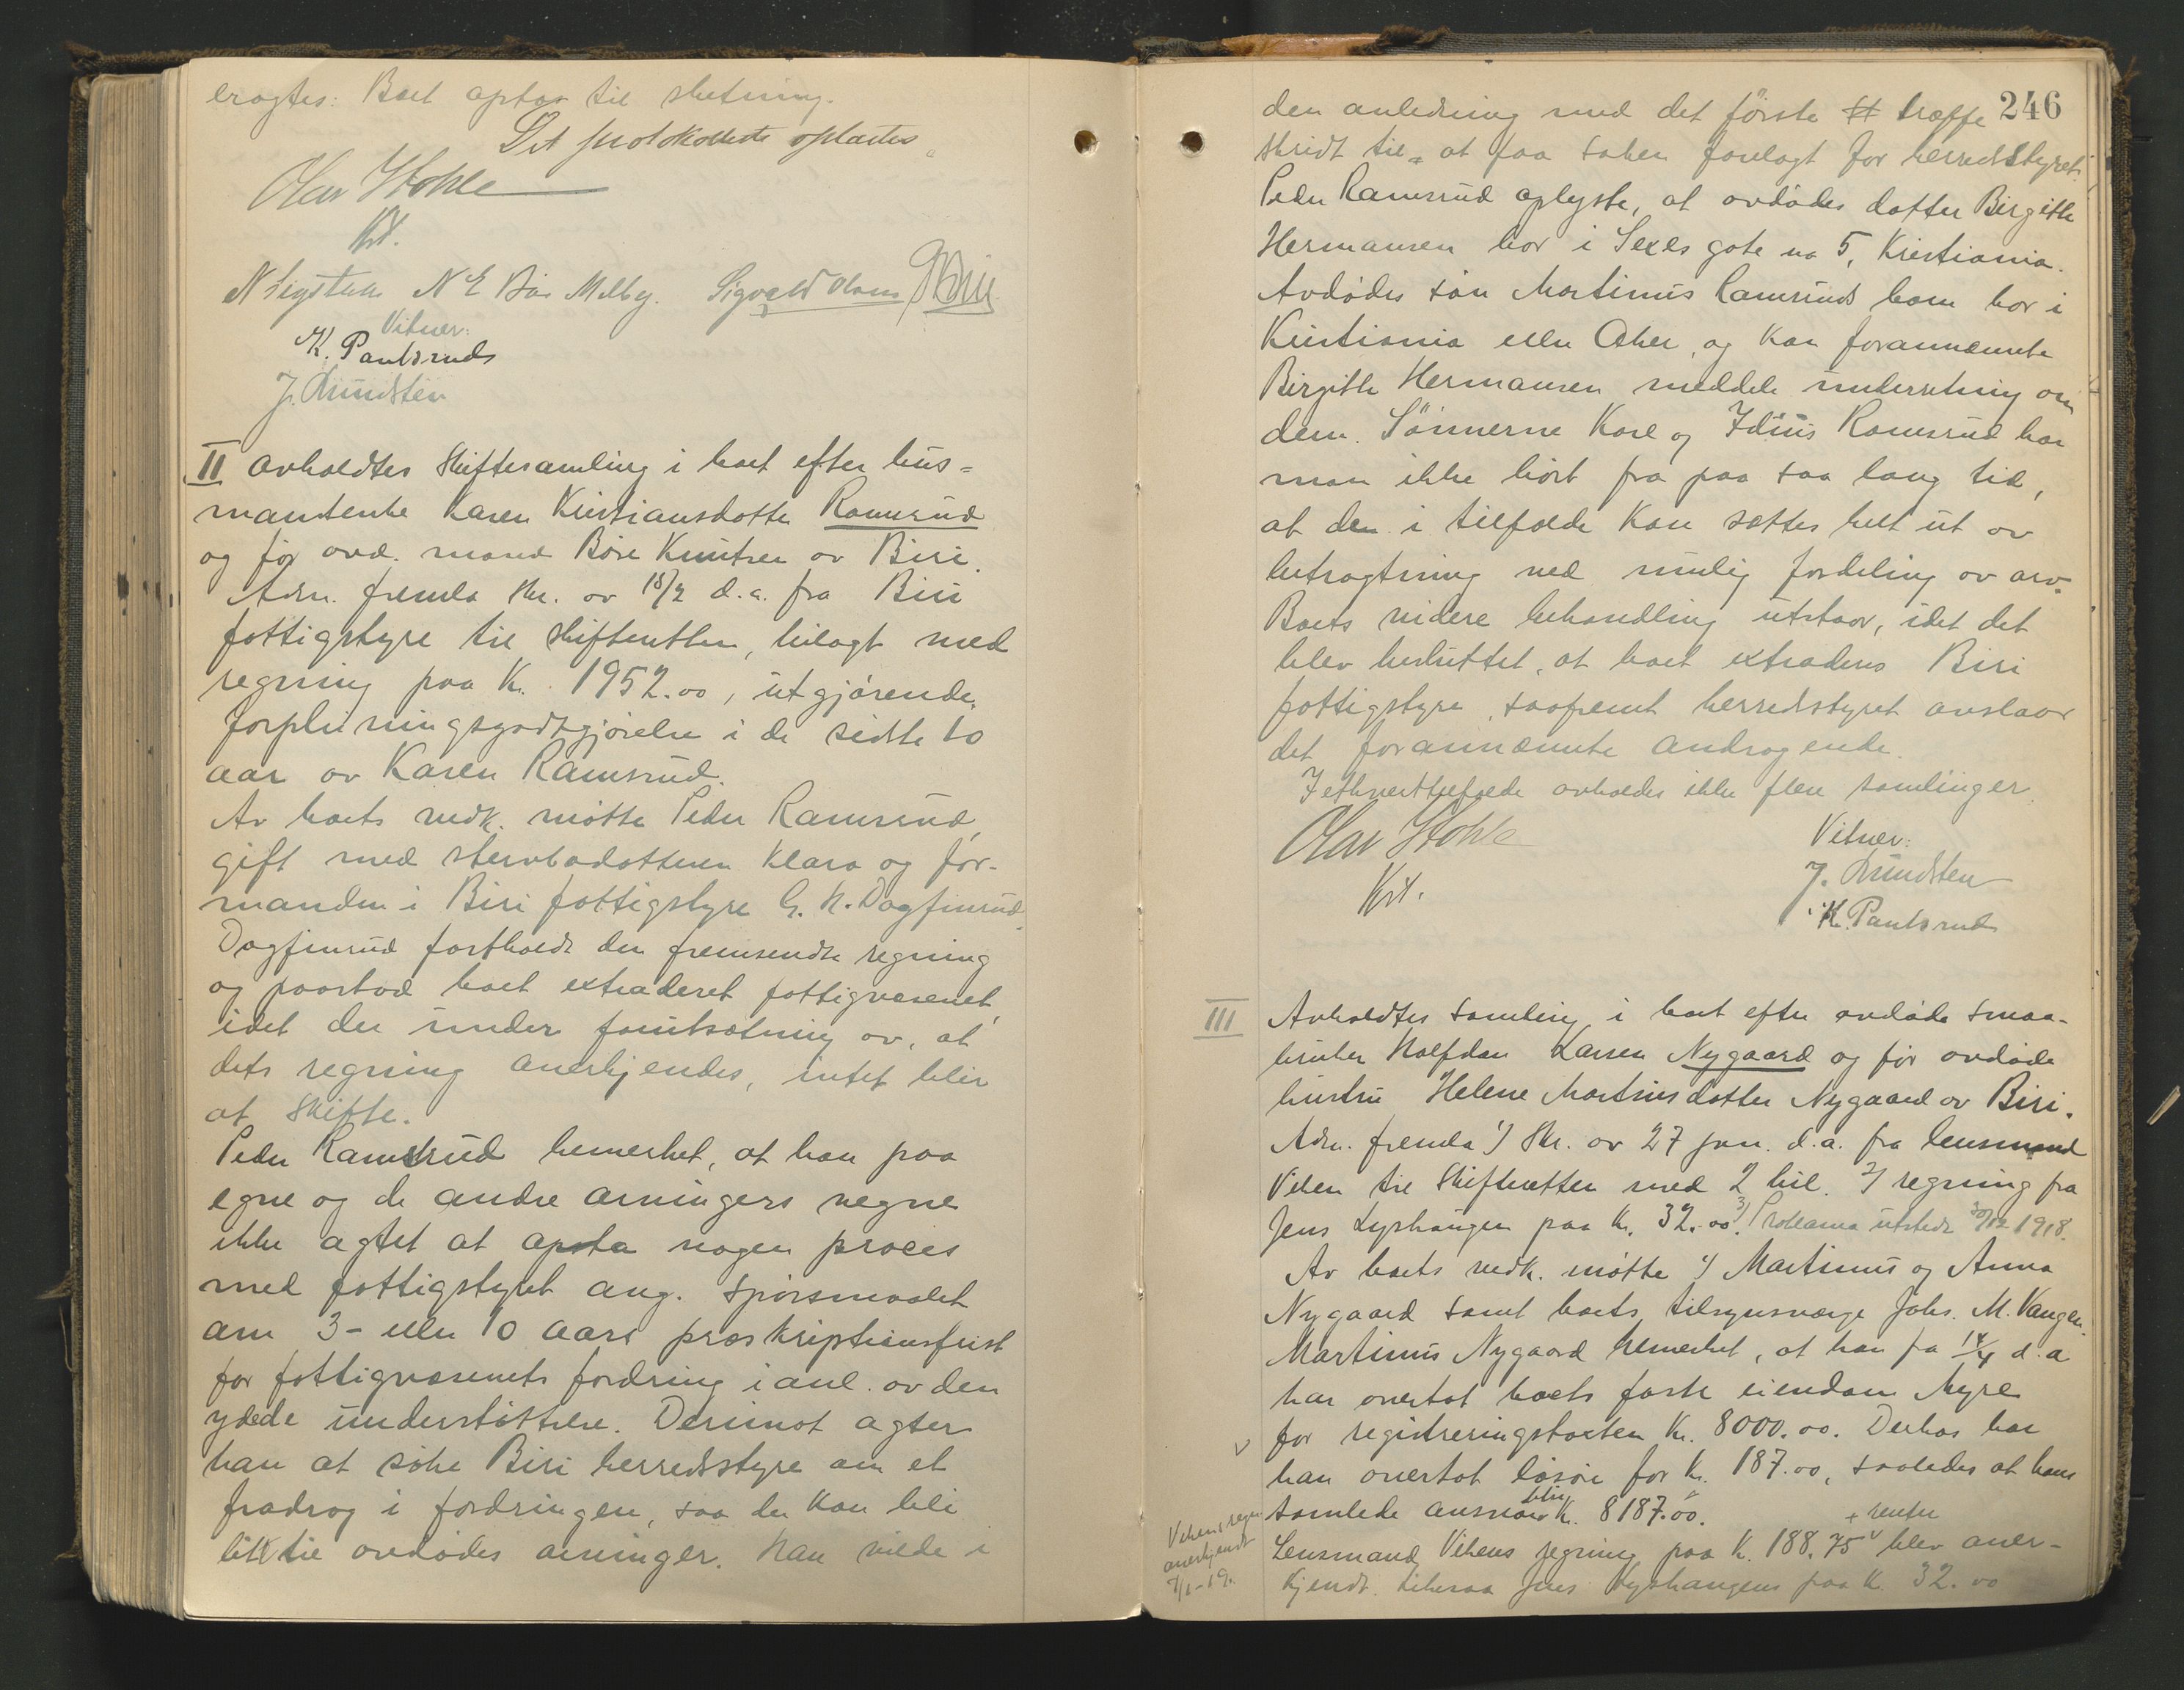 eragtes: Boet optas til slutning.
Det protokollerte oplæstes
Olav Stokke
Kst.
N Sigstad N E Bøe Melby. Sigvald Olsen
Vitner:
K. Paulsrud
J. Lundsten
II Avholdtes skiftesamling i boet efter hus-
mandsenke Karen Kristiansdotter Ramsrud
og før avd. mand Børe Knutsen av Biri.
Adm. fremla skr. av 18/2 d.a. fra Biri
fattigstyre til skifteretten, bilagt med
regning paa Kr. 1952.00, utgjørende
forpleiningsgodtgjørelse i de sidste 10
aar av Karen Ramsrud.
Av boets vedk. møtte Peder Ramsrud,
gift med stervbodatteren Klara og for-
manden i Biri fattigstyre G. N. Dagfinrud
Dagfinrud fastholdt den fremsendte regning
og paastod boet extraderet fattigvæsenet,
idet der under forutsætning av, at
dets regning anerkjendes, intet blir
at skifte.
Peder Ramsrud bemerket, at han paa
egne og de andre arvingers vegne
ikke agtet at opta nogen proces
med fattigstyret ang. spørsmaalet
om 3- eller 10 aars præskriptionsfrist
for fattigvæsenets fordring i anl. av den
ydede understøttelse. Derimot agter
han at søke Biri herredsstyre om et
fradrag i fordringen, saa der kan bli
litt til avdødes arvinger. Han vilde i
246
den anledning med det første træffe
skridt til at faa saken forelagt for herredsstyret.
Peder Ramsrud oplyste, at avdødes datter Birgitte
Hermansen bor i Sexes gate no 5, Kristiania.
Avdødes søn Martinus Ramsrud bor i
Kristiania eller Aker, og kan forannævnte
Birgitte Hermansen meddele underretning om
dem. Sønnerne Karl og Idius Ramsrud har
man ikke hørt fra paa saa lang tid,
at den i tilfælde kan sættes helt ut av
betragtning ved mulig fordeling av arv.
Boets videre behandling utstaar, idet det
blev besluttet, at boet extraderes Biri
fattigstyre, saafremt herredsstyret avslaar
det forannævnte andragende.
I ethvert tilfælde avholdes ikke flere samlinger
Olav Stokke
Kst.
Vitner:
J. Lundsten
K. Paulsrud
III Avholdtes samling i boet efter avdøde smaa-
bruker Halfdan Larsen Nygaard og før avdøde
hustru Helene Martinsdotter Nygaard av Biri.
Adm. fremla 1) Skr. av 27 jan. d.a. fra lensmand
Viken til Skifteretten med 2 bil. 2) regning fra
Jens Lyshaugen paa Kr. 32.00. 3) Proklama utstedt 30/12 1918.
Av boets vedk. møtte 1) Martinus og Anna
Nygaard samt boets tilsynsværge Johs. M. Vangen.
Martinus Nygaard bemerket, at han fra 14/4 d.a.
har overtat boets faste eiendom Myre
for registreringstaksten Kr. 8000.00. Derhos har
han overtat løsøre for Kr. 187.00, saaledes at hans
samlede ansvar blir Kr. 8187.00.
+ renter
Lensmand Vikens regning paa Kr. 188.75 blev aner-
kjendt. Likesaa Jens Lyshaugens paa Kr. 32.00
Vikens regn.
anerkjendt
7/1-19.